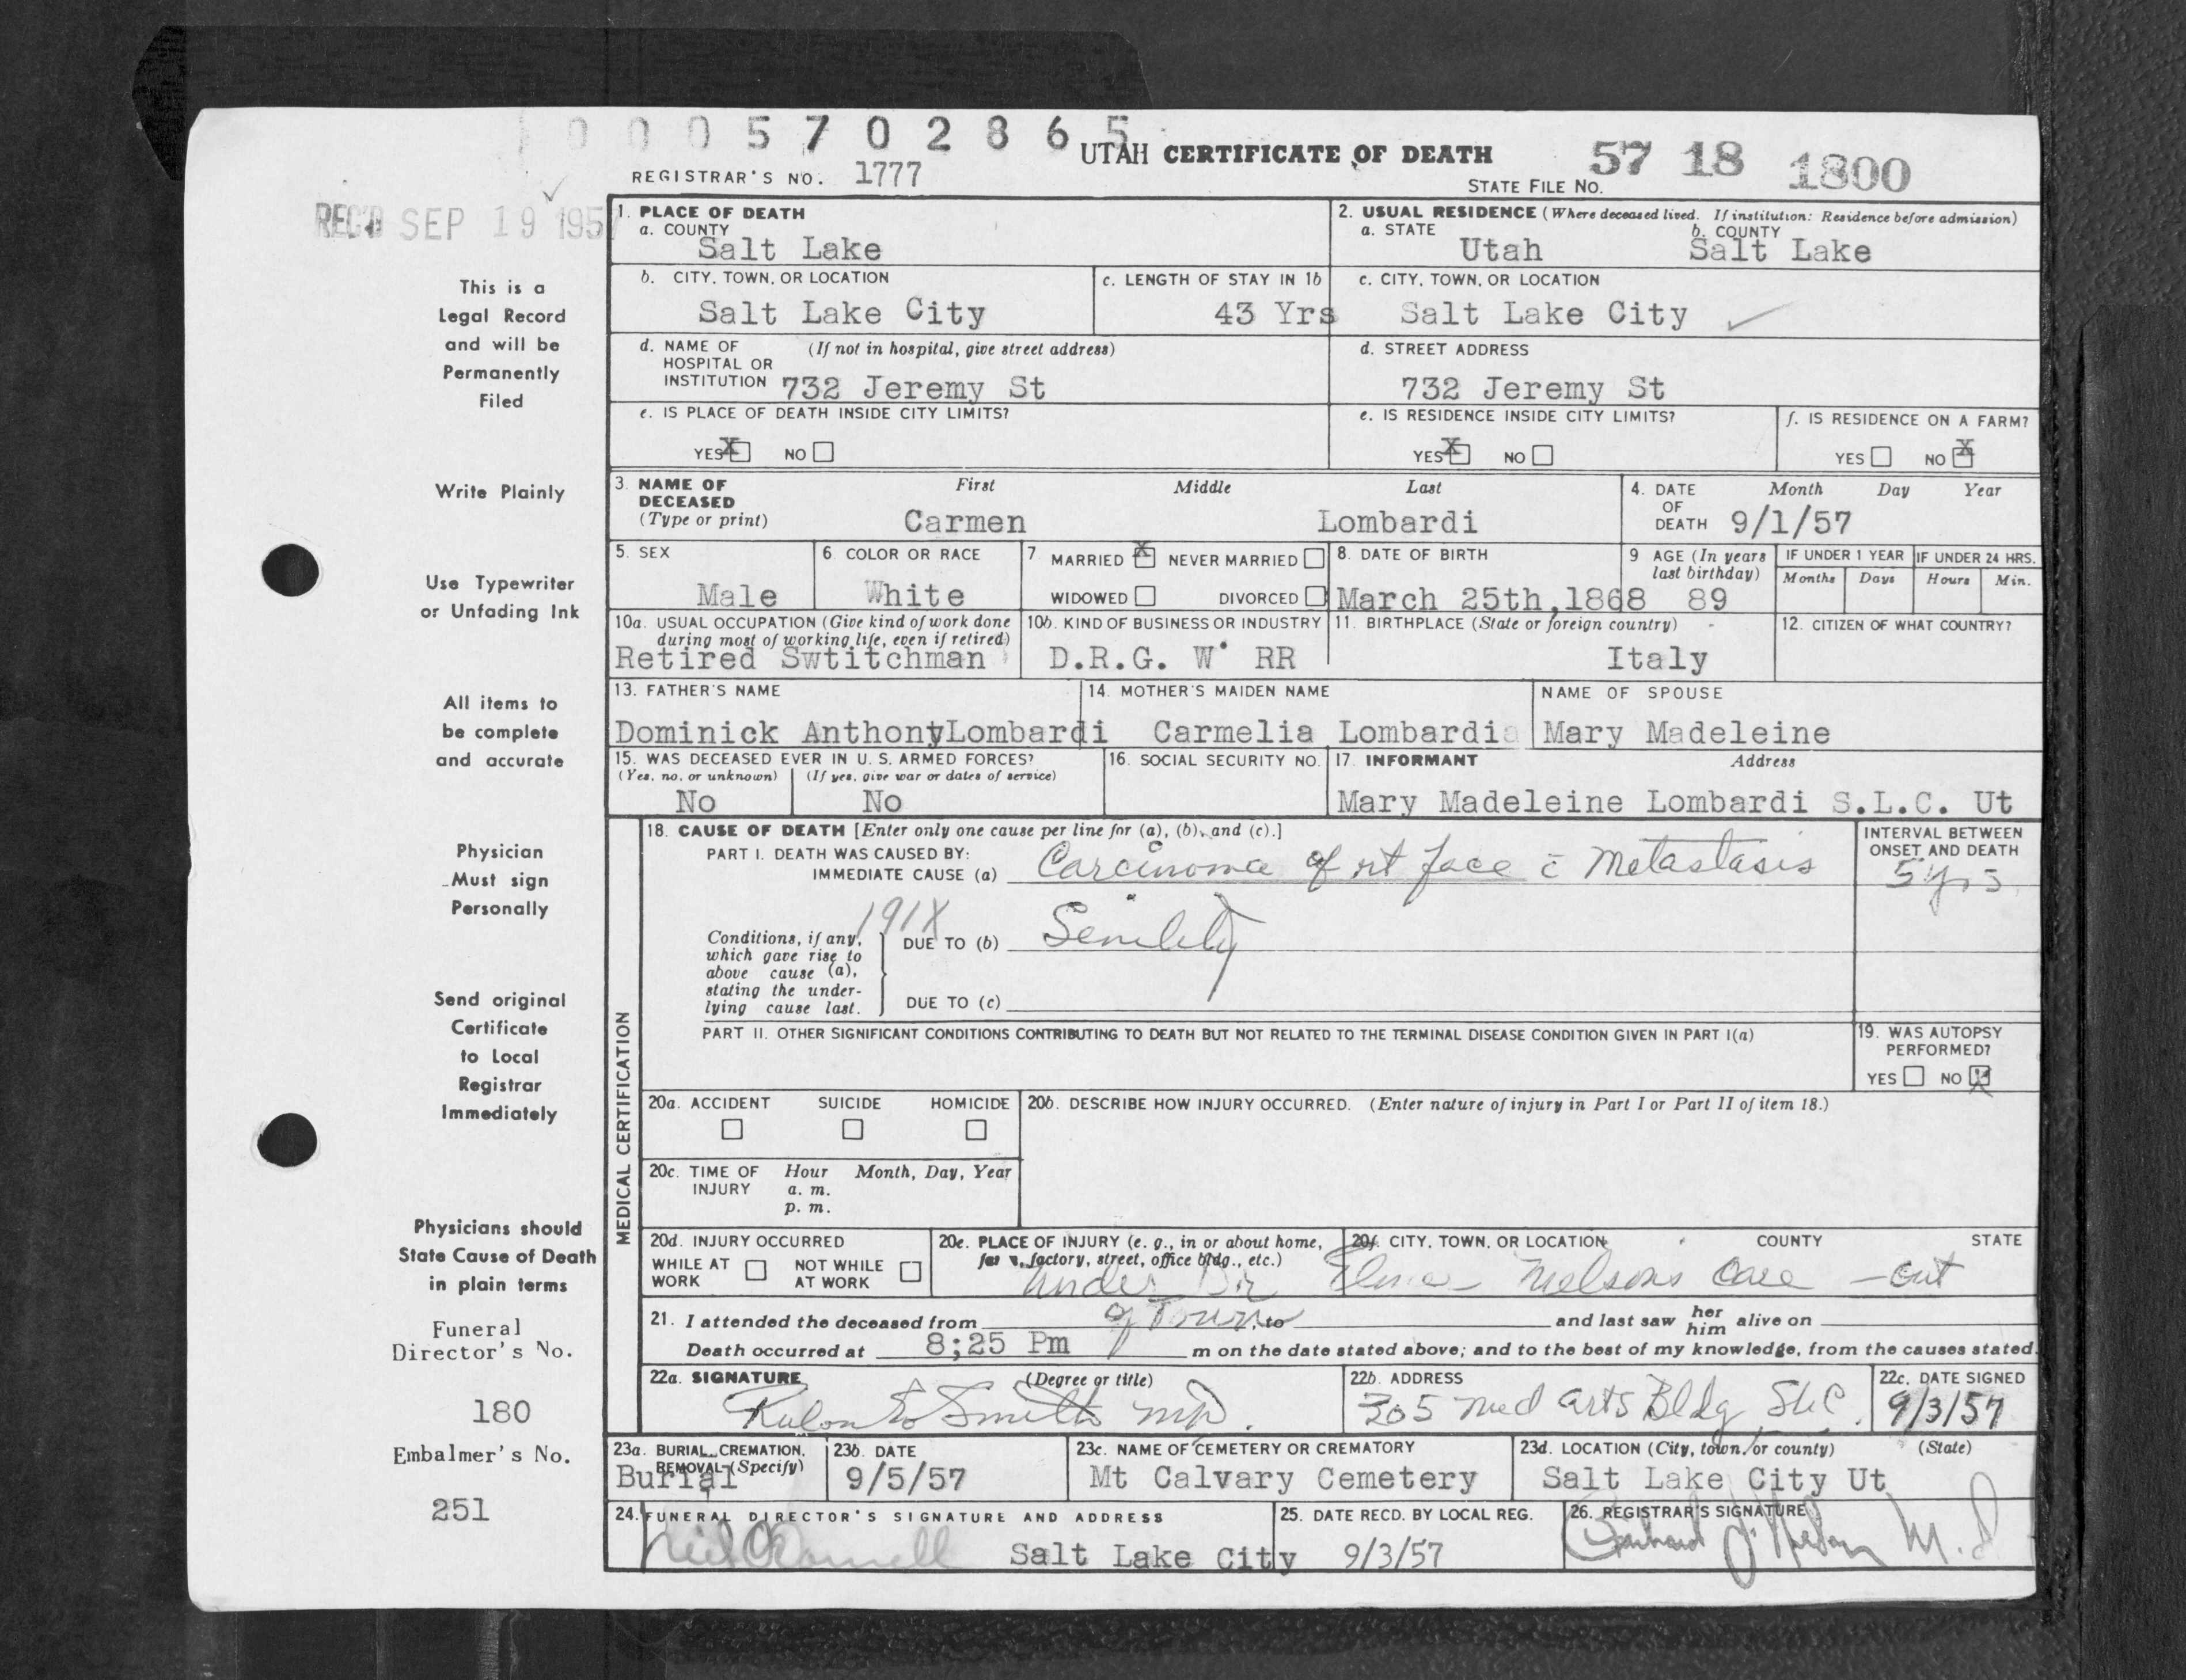 0 0 0 5 7 0 2 8 6 5
UTAH CERTIFICATE OF DEATH
57 18 1800
REGISTRAR'S NO. 1777
STATE FILE NO.
REC'D SEP 19 195
This is a
Legal Record
and will be
Permanently
Filed
Write Plainly
Use Typewriter
or Unfading Ink
All items to
be complete
and accurate
Physician
Must sign
Personally
Send original
Certificate
to Local
Registrar
Immediately
Physicians should
State Cause of Death
in plain terms
Funeral
Director's No.
180
Embalmer's No.
251
1. PLACE OF DEATH
a. COUNTY
Salt Lake
2. USUAL RESIDENCE (Where deceased lived. If institution: Residence before admission)
a. STATE b. COUNTY
Utah Salt Lake
b. CITY, TOWN, OR LOCATION
Salt Lake City
c. LENGTH OF STAY IN 1b
43 Yrs
c. CITY, TOWN, OR LOCATION
Salt Lake City
d. NAME OF (If not in hospital, give street address)
HOSPITAL OR
INSTITUTION 732 Jeremy St
d. STREET ADDRESS
732 Jeremy St
e. IS PLACE OF DEATH INSIDE CITY LIMITS?
YES X NO
e. IS RESIDENCE INSIDE CITY LIMITS?
YES X NO
f. IS RESIDENCE ON A FARM?
YES NO X
3. NAME OF First Middle Last
DECEASED
(Type or print) Carmen Lombardi
4. DATE Month Day Year
OF
DEATH 9/1/57
5. SEX
Male
6. COLOR OR RACE
White
7 MARRIED X NEVER MARRIED
WIDOWED DIVORCED
8. DATE OF BIRTH
March 25th,1868
9 AGE (In years
last birthday)
89
IF UNDER 1 YEAR
Months Days
IF UNDER 24 HRS.
Hours Min.
10a. USUAL OCCUPATION (Give kind of work done
during most of working life, even if retired)
Retired Swtitchman
10b. KIND OF BUSINESS OR INDUSTRY
D.R.G. W. RR
11. BIRTHPLACE (State or foreign country)
Italy
12. CITIZEN OF WHAT COUNTRY?
13. FATHER'S NAME
Dominick Anthony Lombardi
14. MOTHER'S MAIDEN NAME
Carmelia Lombardia
NAME OF SPOUSE
Mary Madeleine
15. WAS DECEASED EVER IN U. S. ARMED FORCES?
(Yes, no, or unknown) (If yes, give war or dates of service)
No No
16. SOCIAL SECURITY NO.
17. INFORMANT Address
Mary Madeleine Lombardi S.L.C. Ut
MEDICAL CERTIFICATION
18. CAUSE OF DEATH [Enter only one cause per line for (a), (b), and (c).]
PART I. DEATH WAS CAUSED BY:
IMMEDIATE CAUSE (a) Carcinoma of rt face c̄ Metastasis
INTERVAL BETWEEN
ONSET AND DEATH
5 yrs
191X
Conditions, if any,
which gave rise to
above cause (a),
stating the under-
lying cause last.
DUE TO (b) Senility
DUE TO (c)
PART II. OTHER SIGNIFICANT CONDITIONS CONTRIBUTING TO DEATH BUT NOT RELATED TO THE TERMINAL DISEASE CONDITION GIVEN IN PART I(a)
19. WAS AUTOPSY
PERFORMED?
YES NO X
20a. ACCIDENT SUICIDE HOMICIDE
20b. DESCRIBE HOW INJURY OCCURRED. (Enter nature of injury in Part I or Part II of item 18.)
20c. TIME OF Hour Month, Day, Year
INJURY a. m.
p. m.
20d. INJURY OCCURRED
WHILE AT NOT WHILE
WORK AT WORK
20e. PLACE OF INJURY (e. g., in or about home,
farm, factory, street, office bldg., etc.)
20f. CITY, TOWN, OR LOCATION COUNTY STATE
under Dr Elmer Nelsons care - out
of Town
21. I attended the deceased from , to and last saw her him alive on
Death occurred at 8;25 Pm m on the date stated above; and to the best of my knowledge, from the causes stated.
22a. SIGNATURE (Degree or title)
Smith MD.
22b. ADDRESS
305 Med Arts Bldg SLC.
22c. DATE SIGNED
9/3/57
23a. BURIAL, CREMATION,
REMOVAL (Specify)
Burial
23b. DATE
9/5/57
23c. NAME OF CEMETERY OR CREMATORY
Mt Calvary Cemetery
23d. LOCATION (City, town, or county) (State)
Salt Lake City Ut
24. FUNERAL DIRECTOR'S SIGNATURE AND ADDRESS
Neil O'Donnell Salt Lake City
25. DATE RECD. BY LOCAL REG.
9/3/57
26. REGISTRAR'S SIGNATURE
M.D